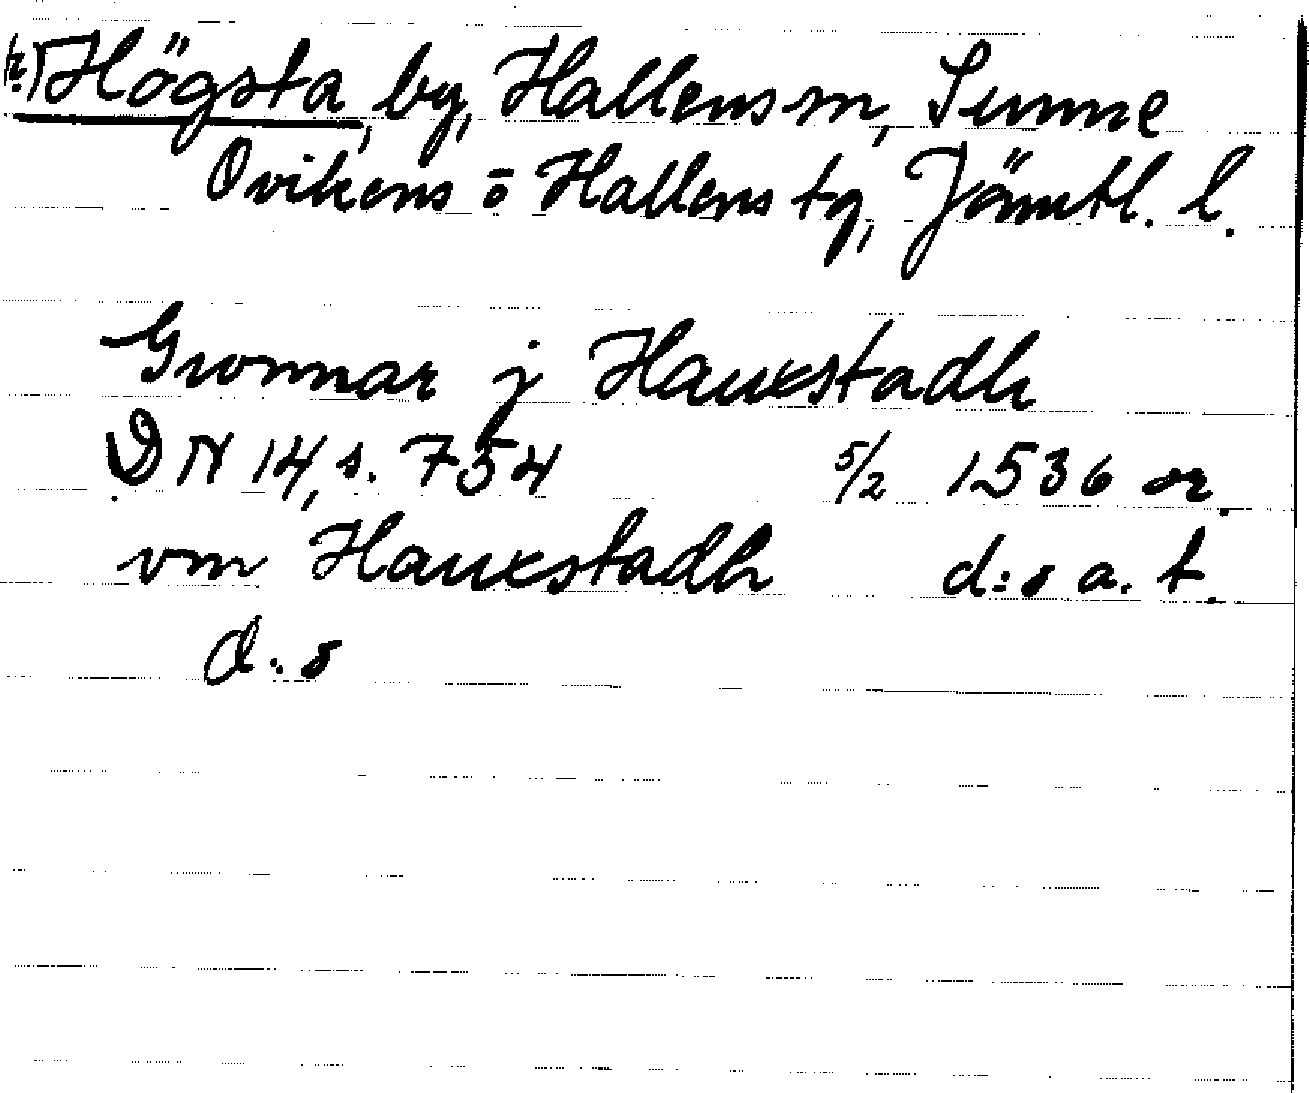 Högsta, by, Hallens sn, Sunne
Ovikens o Hallens tg, Jämtl. l.
Gwnnar j Hauxstadh
DN 14, s. 754 5/2 1536 or.
vm Hauxstadh d:o a. t.
d:o